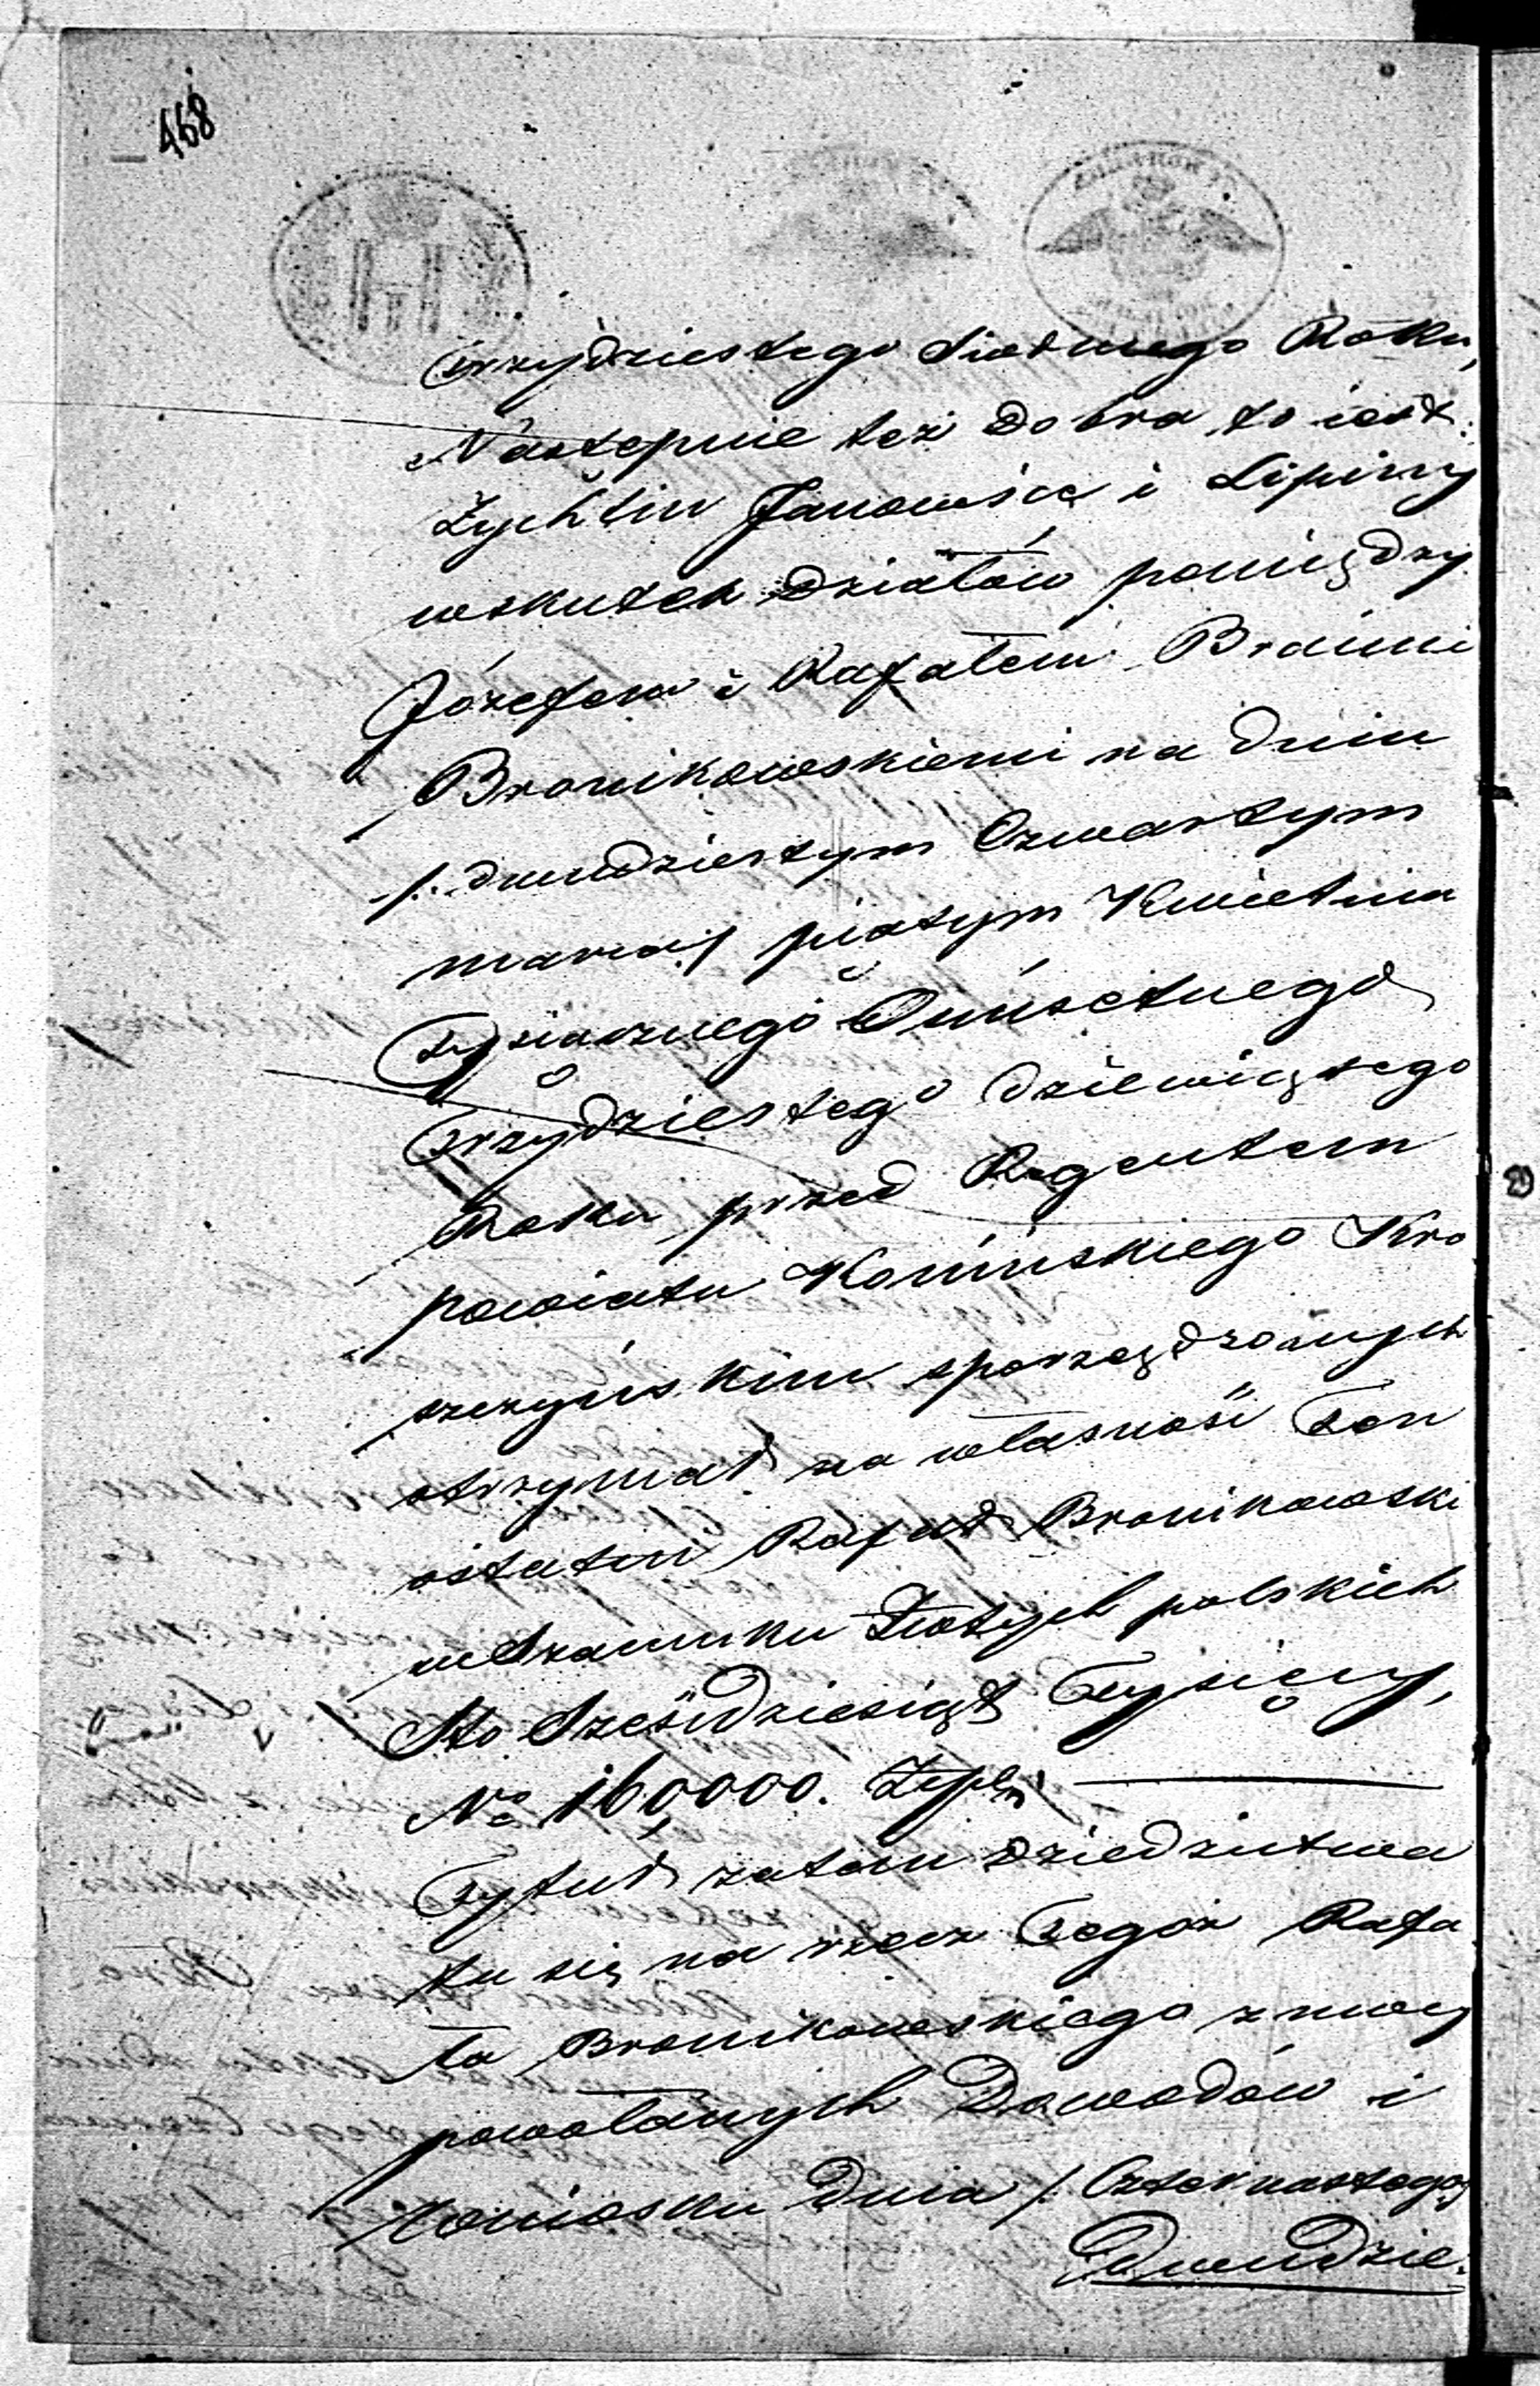 468
Trzydziestego siodmego Roku,
Następnie też Dobra to iest:
Żychlin Janowice i Lipiny
wskutek działów pomiędzy
Józefem i Rafałem Braćmi
Bronikowskiemi na dniu
/: dwudziestym Czwartym
marca/ piątym Kwietnia
Tysiącznego Ośmsetnego
Trzydziestego dziewiątego
Roku przed Regentem
powiatu Konińskiego Kro
szczyńskim sporządzonych
otrzymał na własność Ten
ostatni Rafał Bronikowski
w Szacunku Złotych polskich
Sto Sześćdziesiąt Tysięcy,
No 160,000. Złpln
Tytuł zatem dziedzictwa
tu się na rzecz Tegoż Rafa
ła Bronikowskiego z mocy
powołanych Dowodów i
wniosku dnia /: Czternastego/
Dwudzie: